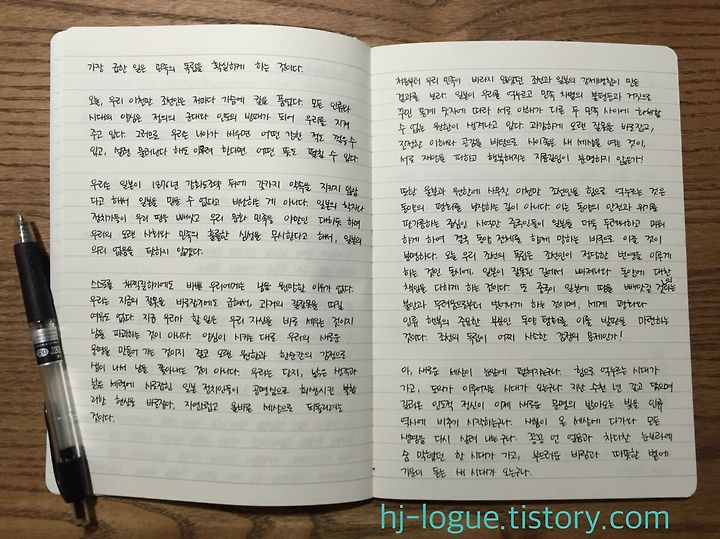 가장 급한 일은 민족의 독립을 확실하게 하는 것이다.
오늘, 우리 이천만 조선인은 저마다 가슴에 칼을 품었다. 모든 인류와
시대의 양심은 정의의 군대와 인도의 방패가 되어 우리를 지켜
주고 있다. 그러므로 우리는 나아가 싸우면 어떤 강한 적도 꺾을 수
있고, 설령 물러난다 해도 이루려 한다면 어떤 뜻도 펼칠 수 있다.
우리는 일본이 1876년 강화도조약 뒤에 갖가지 약속을 지키지 않았
다고 해서 일본을 믿을 수 없다고 비난하는 게 아니다. 일본의 학자와
정치가들이 우리 땅을 빼앗고 우리 문화 민족을 야만인 대하듯 하며
우리의 오랜 사회와 민족의 훌륭한 심성을 무시한다고 해서, 일본의
의리 없음을 탓하지 않겠다.
스스로를 채찍질하기에도 바쁜 우리에게는 남을 원망할 여유가 없다.
우리는 지금의 잘못을 바로잡기에도 급해서, 과거의 잘잘못을 따질
여유도 없다. 지금 우리가 할 일은 우리 자신을 바로 세우는 것이지
남을 파괴하는 것이 아니다. 양심이 시키는 대로 우리의 새로운
운명을 만들어 가는 것이지 결코 오랜 원한과 한순간의 감정으로
샘이 나서 남을 쫓아내는 것이 아니다. 우리는 단지, 낡은 생각과
낡은 세력에 사로잡힌 일본 정치인들이 공명심으로 희생시킨 불합
리한 현실을 바로잡아, 자연스럽고 올바른 세상으로 되돌리려는
것이다.
처음부터 우리 민족이 바라지 않았던 조선과 일본의 강제병합이 만든
결과를 보라. 일본이 우리를 억누르고 민족 차별의 불평등과 거짓으로
꾸민 통계 숫자에 따라 서로 이해가 다른 두 민족 사이에 화해할
수 없는 원한이 생겨나고 있다. 과감하게 오랜 잘못을 바로잡고,
진정한 이해와 공감을 바탕으로 사이좋은 새 세상을 여는 것이,
서로 재앙을 피하고 행복해지는 지름길임이 분명하지 않은가!
또한 울분과 원한에 사무친 이천만 조선인을 힘으로 억누르는 것은
동양의 평화를 보장하는 길이 아니다. 이는 동양의 안전과 위기를
판가름하는 중심인 사억만 중국인들이 일본을 더욱 두려워하고 미워
하게 하여 결국 동양 전체를 함께 망하는 비극으로 이끌 것이
분명하다. 오늘 우리 조선의 독립은 조선인이 정당한 번영을 이루게
하는 것인 동시에, 일본이 잘못된 길에서 빠져나와 동양에 대한
책임을 다하게 하는 것이다. 또 중국이 일본에 땅을 빼앗길 것이라는
불안과 두려움으로부터 벗어나게 하는 것이며, 세계 평화와
인류 행복의 중요한 부분인 동양 평화를 이룰 발판을 마련하는
것이다. 조선의 독립이 어찌 사소한 감정의 문제인가!
아, 새로운 세상이 눈앞에 펼쳐지는구나. 힘으로 억누르는 시대가
가고, 도의가 이루어지는 시대가 오는구나. 지난 수천 년 갈고 닦으며
길러온 인도적 정신이 이제 새로운 문명의 밝아오는 빛을 인류
역사에 비추기 시작하는구나. 새봄이 온 세상에 다가와 모든
생명을 다시 살려 내는구나. 꽁꽁 언 얼음과 차디찬 눈보라에
숨 막혔던 한 시대가 가고, 부드러운 바람과 따뜻한 볕에
기운이 돋는 새 시대가 오는구나.
hj-logue.tistory.com